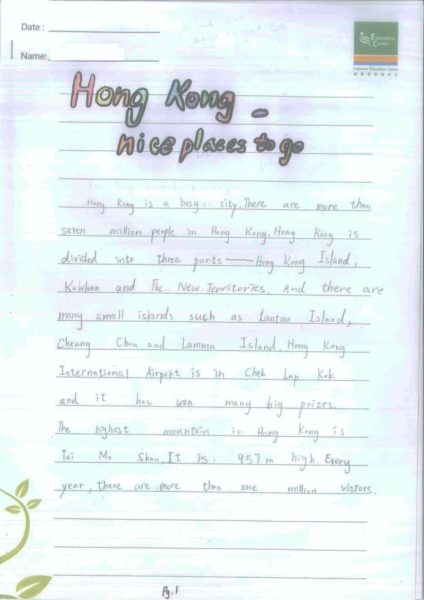 Date :
Education
Centre
Name:
Hong Kong -
nice places to go
Hong Kong is a busy city. There are more than
seven million people in Hong Kong. Hong Kong is
divided into three parts — Hong Kong Island,
Kowloon and The New Territories. And there are
many small islands such as Lantau Island,
Cheung Chau and Lamma Island. Hong Kong
International Airport is in Chek Lap Kok
and it has won many big prizes.
The highest mountain in Hong Kong is
Tai Mo Shan. It is 957 m high. Every
year, there are more than one million vistors.
Pg. 1